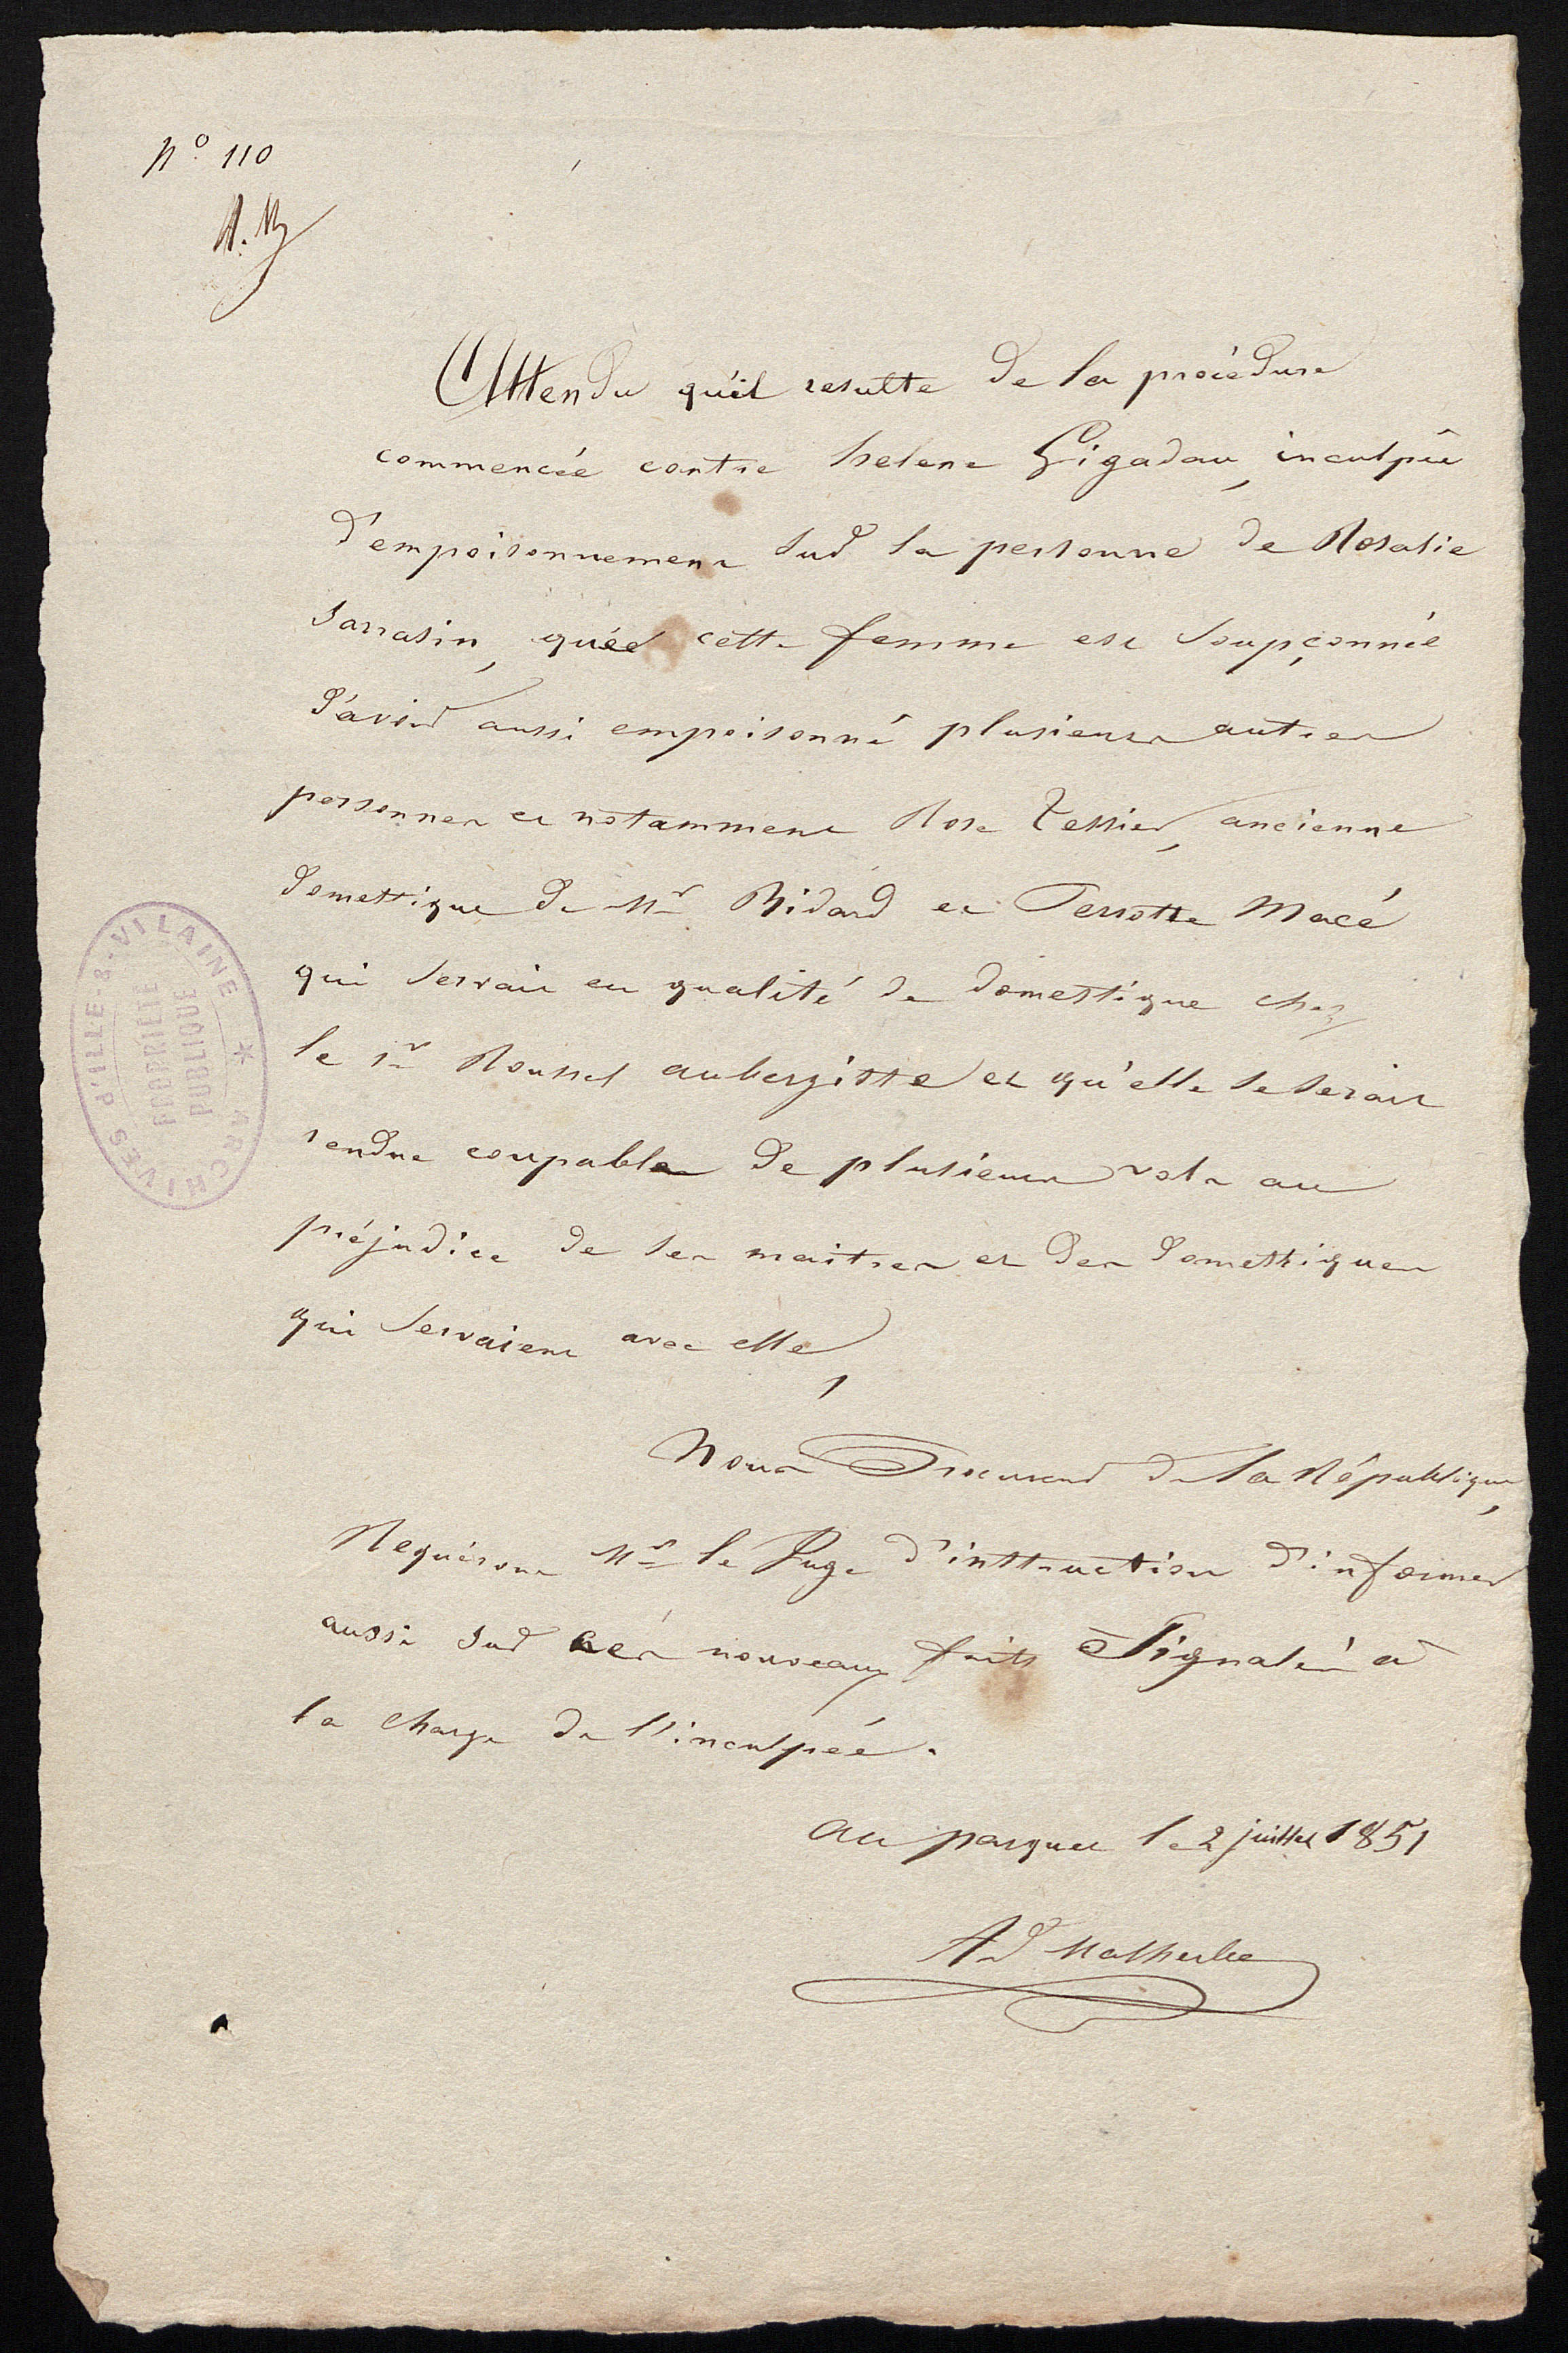 N° 110
Attendu qu'il resulte de la procédure
commencée contre helene Gigadau, inculpée
d'empoisonnement sur la personne de Rosalie
Sarrasin, que cette femme est soupçonnée
d'avoir aussi empoisonné plusieurs autres
personnes et notamment Rose Tessier, ancienne
domestique de Mr Bidard et Perrotte Macé
qui servait en qualité de domestique chez
le sr Roussel aubergiste et qu'elle se serait
rendue coupable de plusieurs vols au
préjudice de ses maitres et des domestiques
qui servaient avec elle,
Nous Procureur de la République,
Requérons Mr le Juge d'instruction d'informer
aussi sur ces nouveaux faits signalés à
la charge de l'inculpée.
au parquet le 2 juillet 1851
Ad Malherbe
ARCHIVES d'ILLE-&-VILAINE *
PROPRIÉTÉ
PUBLIQUE